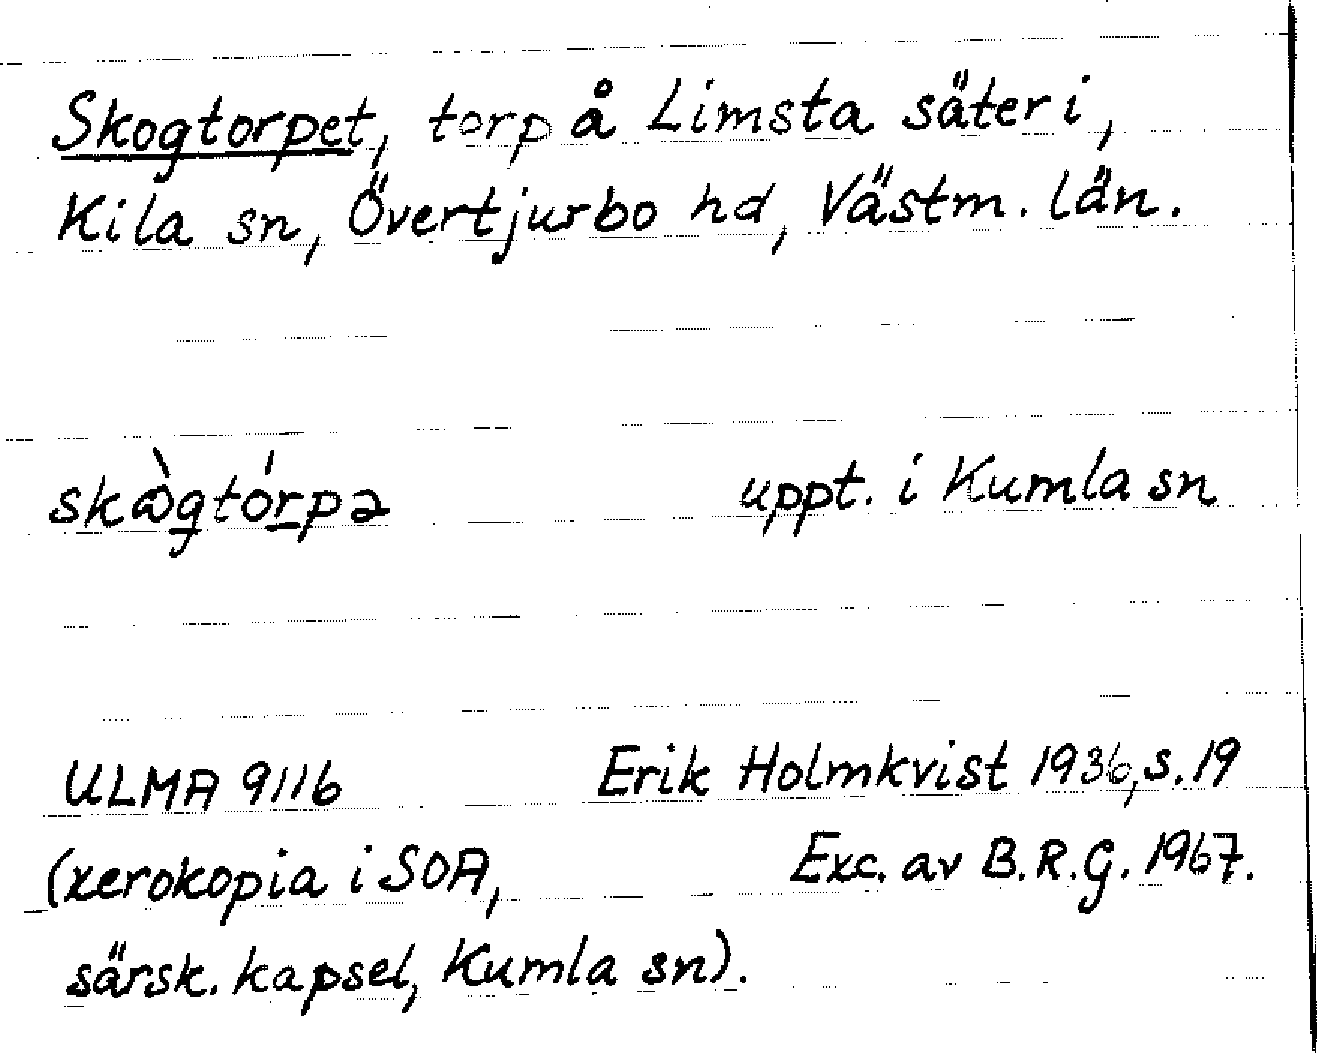 Skogtorpet, torp å Limsta säteri,
Kila sn, Övertjurbo hd, Västm. län.
skògtórpə uppt. i Kumla sn
ULMA 9116 Erik Holmkvist 1936, s. 19
(xerokopia i SOA, Exc. av B.R.G. 1967.
särsk. kapsel, Kumla sn).